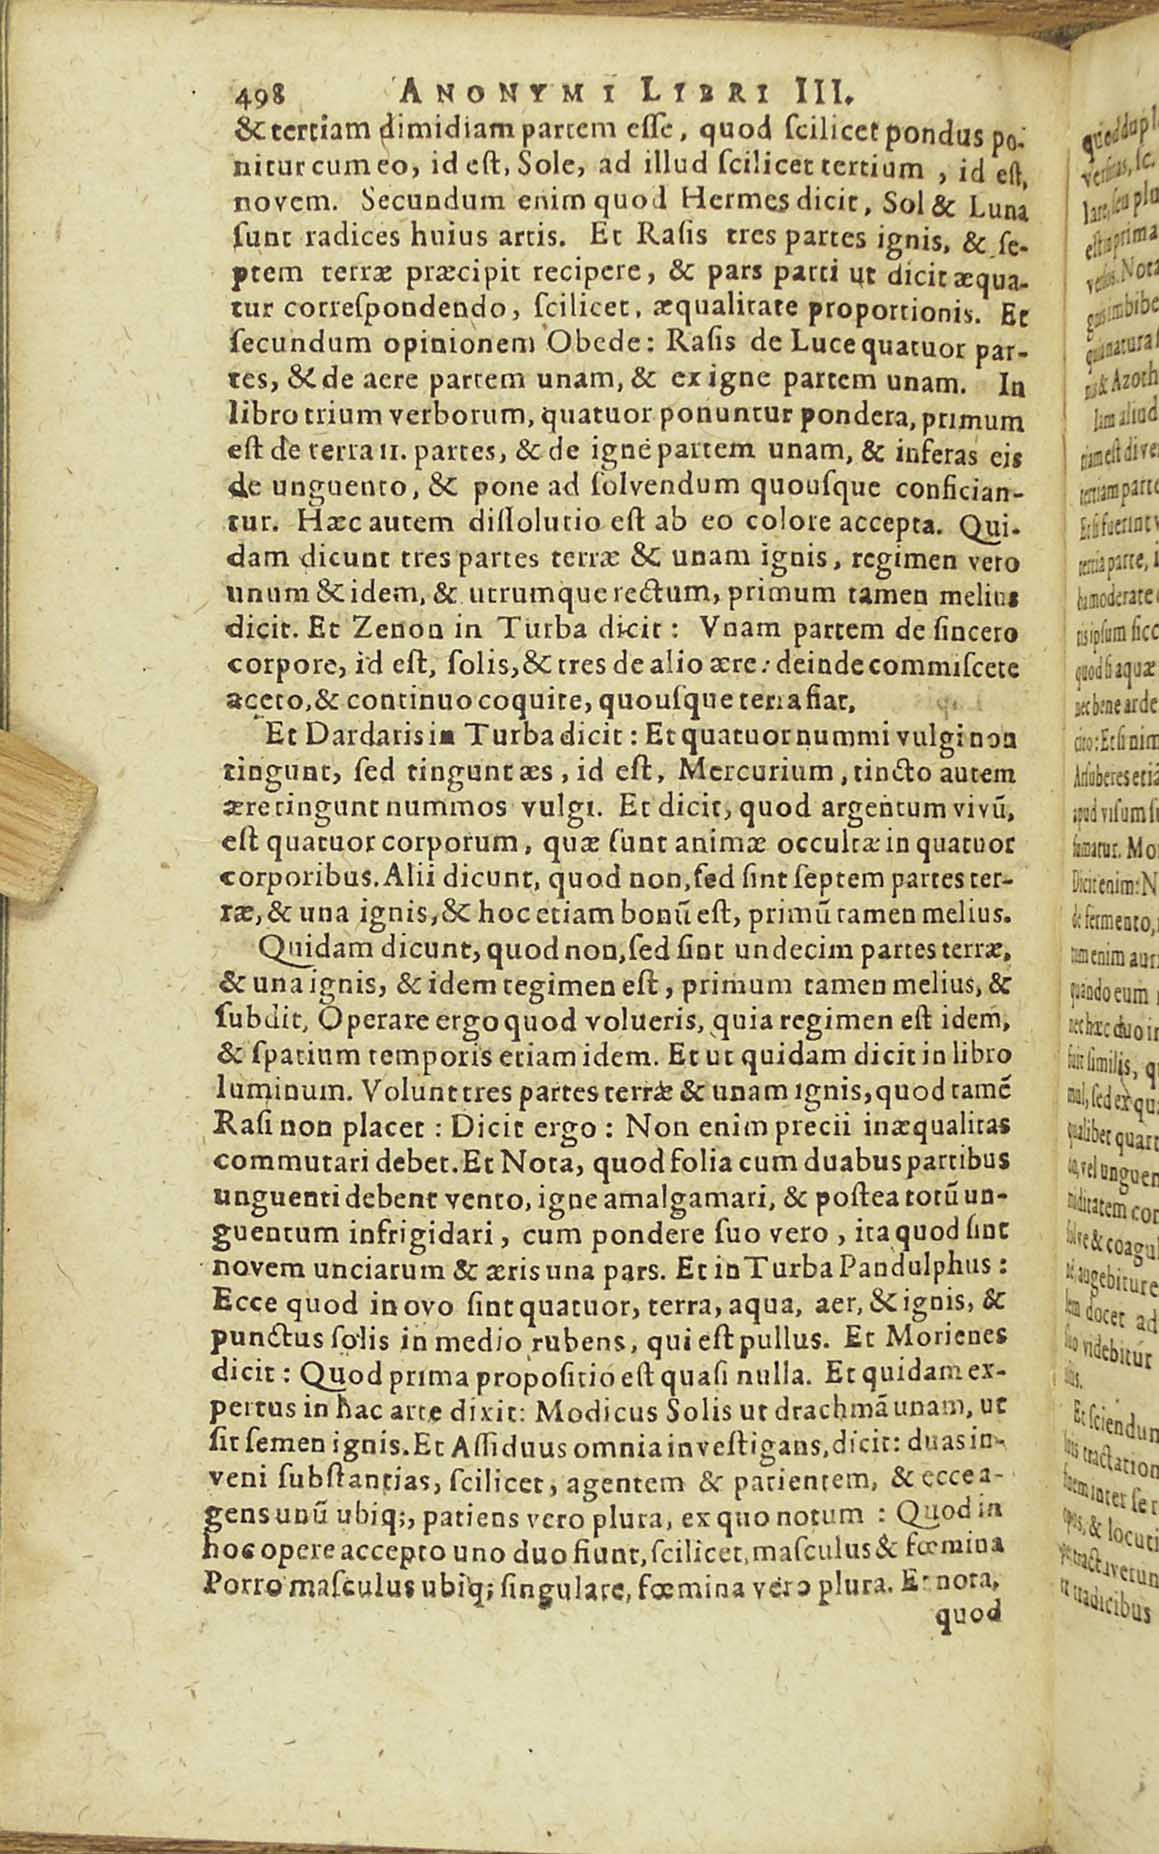 498 ANONYMI LIBRI III.
& tertiam dimidiam partem esse, quod scilicet pondus po-
nitur cum eo, id est, Sole, ad illud scilicet tertium, id est,
novem. Secundum enim quod Hermes dicit, Sol & Luna
sunt radices huius artis. Et Rasis tres partes ignis, & se-
ptem terræ præcipit recipere, & pars parti ut dicit æqua-
tur correspondendo, scilicet, æqualitate proportionis. Et
secundum opinionem Obede: Rasis de Luce quatuor par-
tes, & de aere partem unam, & ex igne partem unam. In
libro trium verborum, quatuor ponuntur pondera, primum
est de terra 11. partes, & de igne partem unam, & inferas eis
de unguento, & pone ad solvendum quousque confician-
tur. Hæc autem dissolutio est ab eo colore accepta. Qui-
dam dicunt tres partes terræ & unam ignis, regimen vero
unum & idem, & utrumque rectum, primum tamen melius
dicit. Et Zenon in Turba dicit: Vnam partem de sincero
corpore, id est, solis, & tres de alio ære: deinde commiscete
aceto, & continuo coquite, quousque terra fiat,
Et Dardaris in Turba dicit: Et quatuor nummi vulgi non
tingunt, sed tingunt æs, id est, Mercurium, tincto autem
ære tingunt nummos vulgi. Et dicit, quod argentum vivū,
est quatuor corporum, quæ sunt animæ occultæ in quatuor
corporibus. Alii dicunt, quod non, sed sint septem partes ter-
ræ, & una ignis, & hoc etiam bonū est, primū tamen melius.
Quidam dicunt, quod non, sed sint undecim partes terræ,
& una ignis, & idem regimen est, primum tamen melius, &
subdit, Operare ergo quod volueris, quia regimen est idem,
& spatium temporis etiam idem. Et ut quidam dicit in libro
luminum. Volunt tres partes terræ & unam ignis, quod tamē
Rasi non placet: Dicit ergo: Non enim precii inæqualitas
commutari debet. Et Nota, quod folia cum duabus partibus
unguenti debent vento, igne amalgamari, & postea totū un-
guentum infrigidari, cum pondere suo vero, ita quod sint
novem unciarum & æris una pars. Et in Turba Pandulphus:
Ecce quod in ovo sint quatuor, terra, aqua, aer, & ignis, &
punctus solis in medio rubens, qui est pullus. Et Morienes
dicit: Quod prima propositio est quasi nulla. Et quidam ex-
pertus in hac arte dixit: Modicus Solis ut drachmā unam, ut
sit semen ignis. Et Assiduus omnia investigans, dicit: duas in-
veni substantias, scilicet, agentem & patientem, & ecce a-
gens unū ubiq;, patiens vero plura, ex quo notum: Quod in
hoc opere accepto uno duo fiunt, scilicet, masculus & fœmina
Porro masculus ubiq; singulare, fœmina vero plura. Et nota,
quod